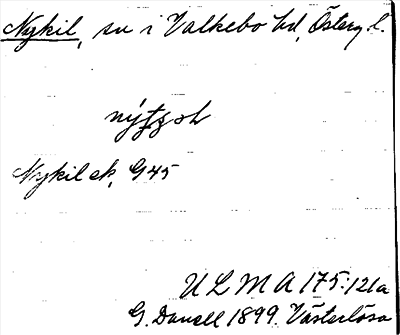 Nykil, sn i Valkebo hd, Österg.l.
Nykil sk, G45
ULMA 175:121a
G. Danell 1899. Västerlösa